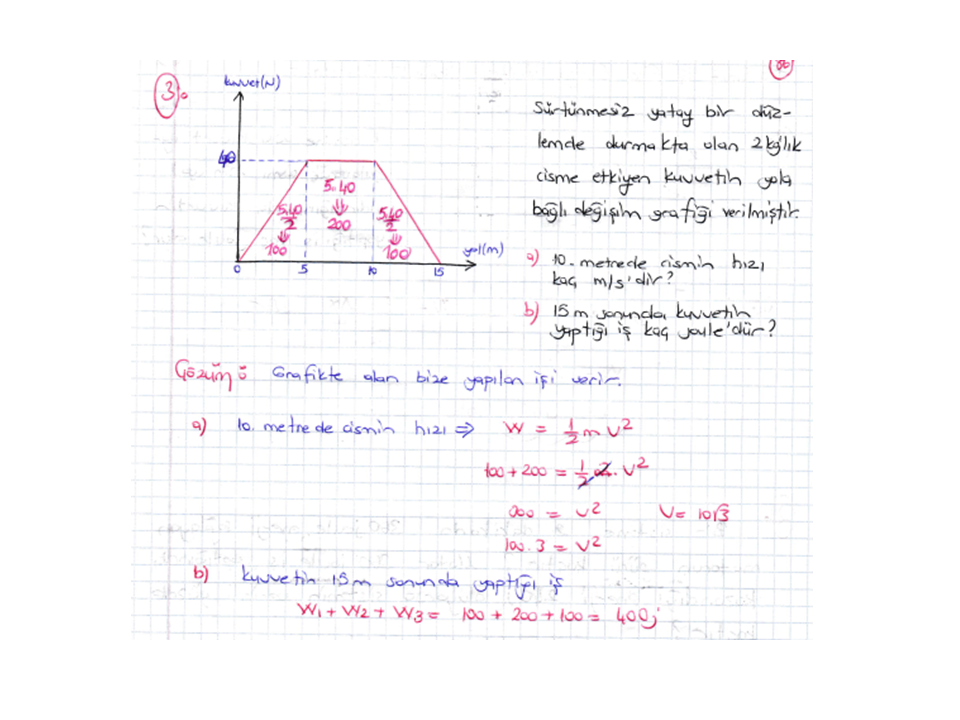 3.
kuvvet(N)
40
5.40
200
5.40
2
100
5.40
2
100
yol(m)
0 5 10 15
Sürtünmesiz yatay bir düz-
lemde durmakta olan 2kg'lık
cisme etkiyen kuvvetin yola
bağlı değişim grafiği verilmiştir.
a) 10. metrede cismin hızı
kaç m/s'dir?
b) 15 m sonunda kuvvetin
yaptığı iş kaç joule'dür?
Çözüm: Grafikte alan bize yapılan işi verir.
a) 10. metrede cismin hızı ⇒ W = 1/2 m V²
100 + 200 = 1/2 2. V²
300 = V² V = 10√3
100.3 = V²
b) kuvvetin 15m sonunda yaptığı iş
W1 + W2 + W3 = 100 + 200 + 100 = 400j